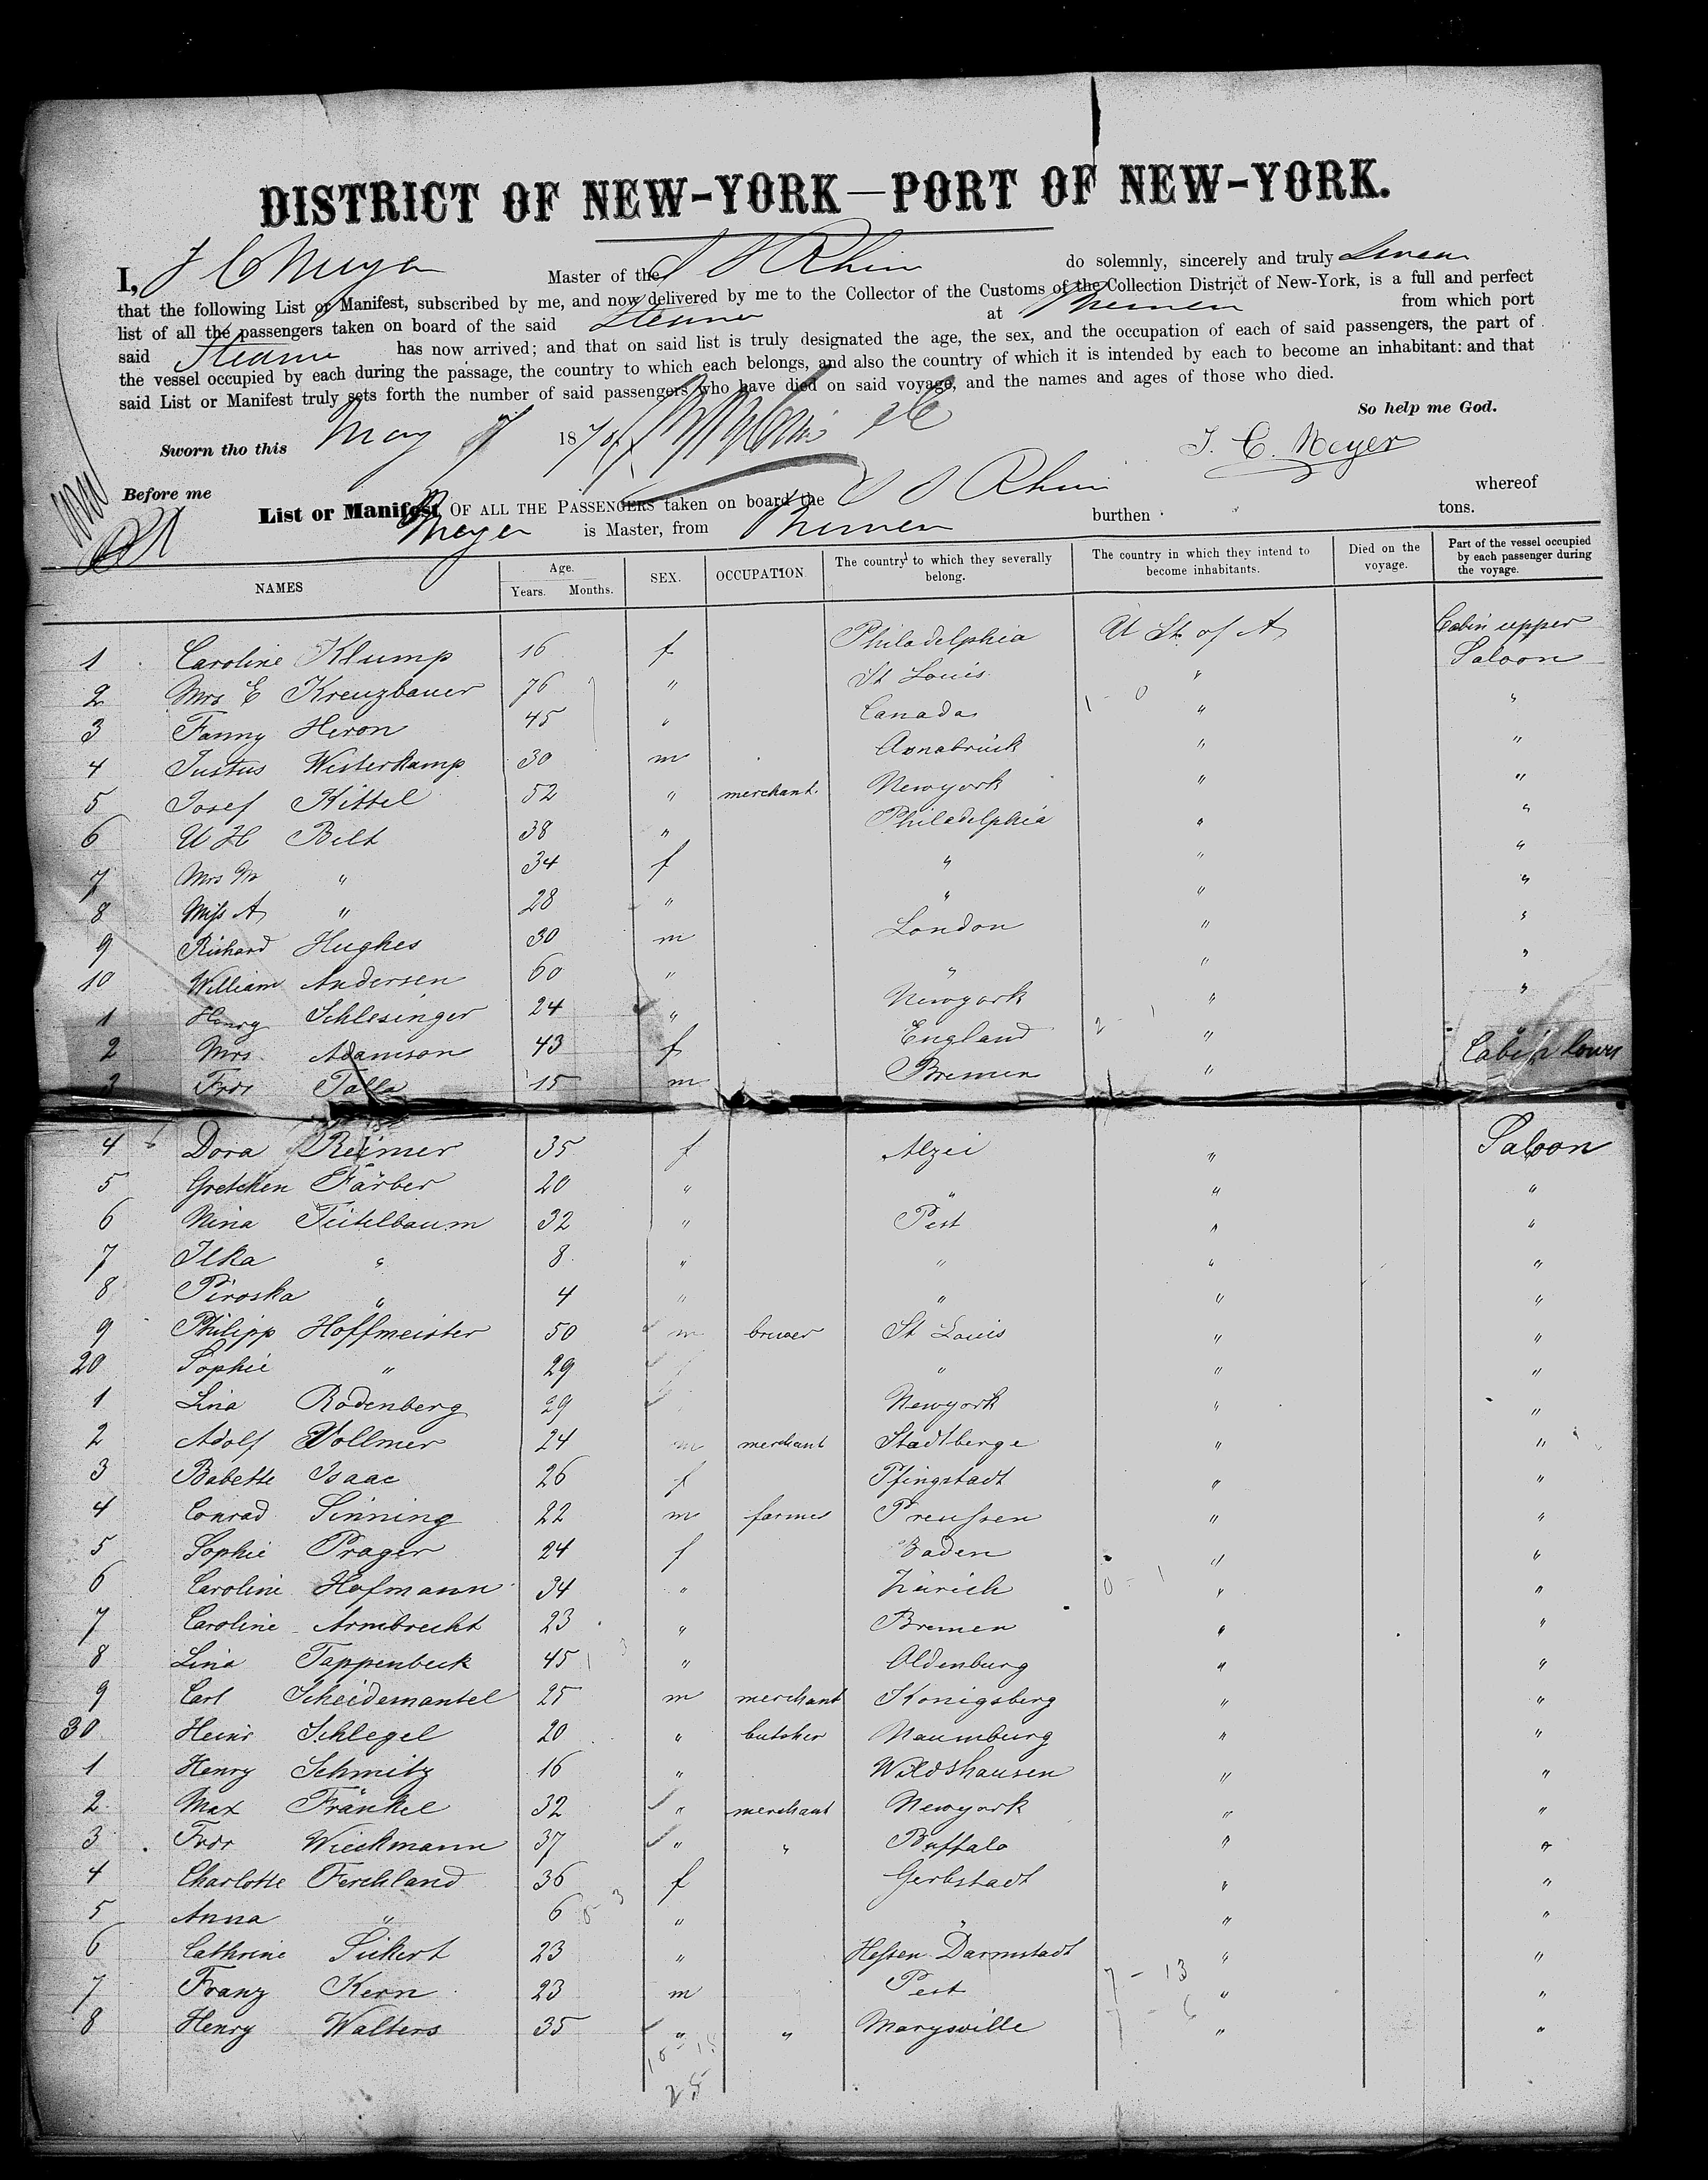 DISTRICT OF NEW-YORK—PORT OF NEW-YORK.
I, J C Meyer Master of the S S Rhein do solemnly, sincerely and truly Swear
that the following List or Manifest, subscribed by me, and now delivered by me to the Collector of the Customs of the Collection District of New-York, is a full and perfect
list of all the passengers taken on board of the said Steamer at Bremen from which port
said Steamer has now arrived; and that on said list is truly designated the age, the sex, and the occupation of each of said passengers, the part of
the vessel occupied by each during the passage, the country to which each belongs, and also the country of which it is intended by each to become an inhabitant: and that
said List or Manifest truly sets forth the number of said passengers who have died on said voyage, and the names and ages of those who died.
So help me God.
Sworn tho this May 7 187
J. C. Meyer
Before me
List or Manifest OF ALL THE PASSENGERS taken on board the S S Rhein whereof
Meyer is Master, from Bremen burthen tons.
NAMES Age. Years. Months. SEX. OCCUPATION The country to which they severally belong. The country in which they intend to become inhabitants. Died on the voyage. Part of the vessel occupied by each passenger during the voyage.
1 Caroline Klump 16 f Philadelphia U St. of A Cabin upper Saloon
2 Mrs E Kreuzbauer 76 " St Louis " "
3 Fanny Heron 45 " Canada 1 - 0 " "
4 Justus Westerkamp 30 m Osnabrück " "
5 Josef Kittel 52 " merchant. Newyork " "
6 U H Belt 38 " Philadelphia " "
7 Mrs M " 34 f " " "
8 Miss A " 28 " " " "
9 Richard Hughes 30 m London " "
10 William Andersen 60 " " " "
1 Henry Schlesinger 24 " Newyork " "
2 Mrs. Adamson 43 f England 2 - 1 " Cabin lower
3 Fror Talla 15 m Bremen "
4 Dora Reimer 35 f Alzei " Saloon
5 Gretchen Färber 20 " " " "
6 Nina Teitelbaum 32 " Pest " "
7 Ilka " 8 " " " "
8 Piroska " 4 " " " "
9 Philipp Hoffmeister 50 m brewer St Louis " "
20 Sophie " 29 " " "
1 Lina Rodenberg 29 Newyork " "
2 Adolf Vollmer 24 m merchant Stadtberge " "
3 Babette Isaac 26 f Pfingstadt " "
4 Conrad Sinning 22 m farmer Preussen " "
5 Sophie Prager 24 f Baden " "
6 Caroline Hofmann 34 " Zürich 0 - 1 " "
7 Caroline Armbrecht 23 " Bremen " "
8 Lina Tappenbeck 45 " Oldenburg " "
9 Carl Scheidemantel 25 m merchant Konigsberg " "
30 Heinr Schlegel 20 " butcher Naumburg " "
1 Henry Schmitz 16 " Wildshausen " "
2 Max Fränkel 32 " merchant Newyork " "
3 Fror Wieckmann 37 " " Buffalo " "
4 Charlotte Ferchland 36 f Gerbstadt " "
5 Anna " 6 " " " "
6 Cathrine Sickert 23 " Hessen Darmstadt " "
7 Franz Kern 23 m Pest 7 - 13 " "
8 Henry Walters 35 " " Marysville " "
10 - 15
25